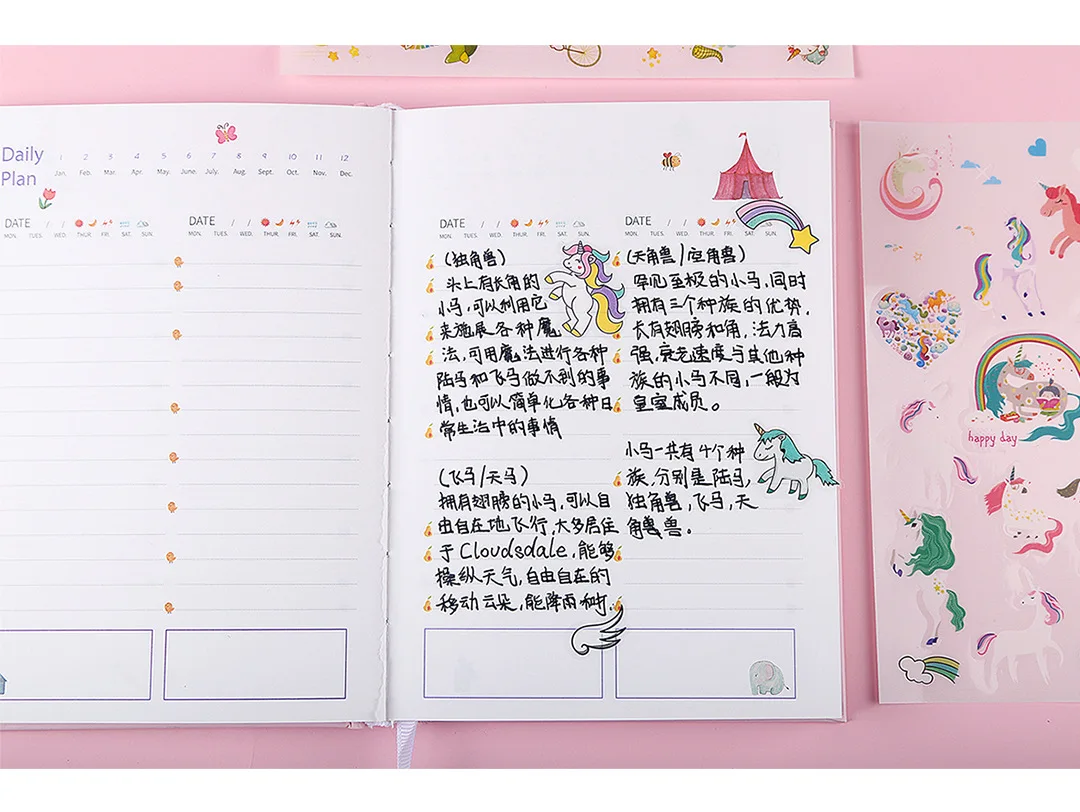 Daily
Plan
1 2 3 4 5 6 7 8 9 10 11 12
Jan. Feb. Mar. Apr. May. June. July. Aug. Sept. Oct. Nov. Dec.
DATE / /
MON. TUES. WED. THUR. FRI. SAT. SUN.
DATE / /
MON. TUES. WED. THUR. FRI. SAT. SUN.
DATE / /
MON. TUES. WED. THUR. FRI. SAT. SUN.
(独角兽)
头上有长角的
小马,可以利用它
来施展各种魔
法,可用魔法进行各种
陆马和飞马做不到的事
情,也可以简单化各种日
常生活中的事情
(飞马/天马)
拥有翅膀的小马,可以自
由自在地飞行,大多居住
于Cloudsdale,能够
操纵天气,自由自在的
移动云朵,能降雨
DATE / /
MON. TUES. WED. THUR. FRI. SAT. SUN.
(天角兽/空角兽)
罕见至极的小马,同时
拥有三个种族的优势,
长有翅膀和角,法力高
强,衰老速度与其他种
族的小马不同,一般为
皇室成员。
小马一共有4个种
族,分别是陆马,
独角兽,飞马,天
角兽。
happy day